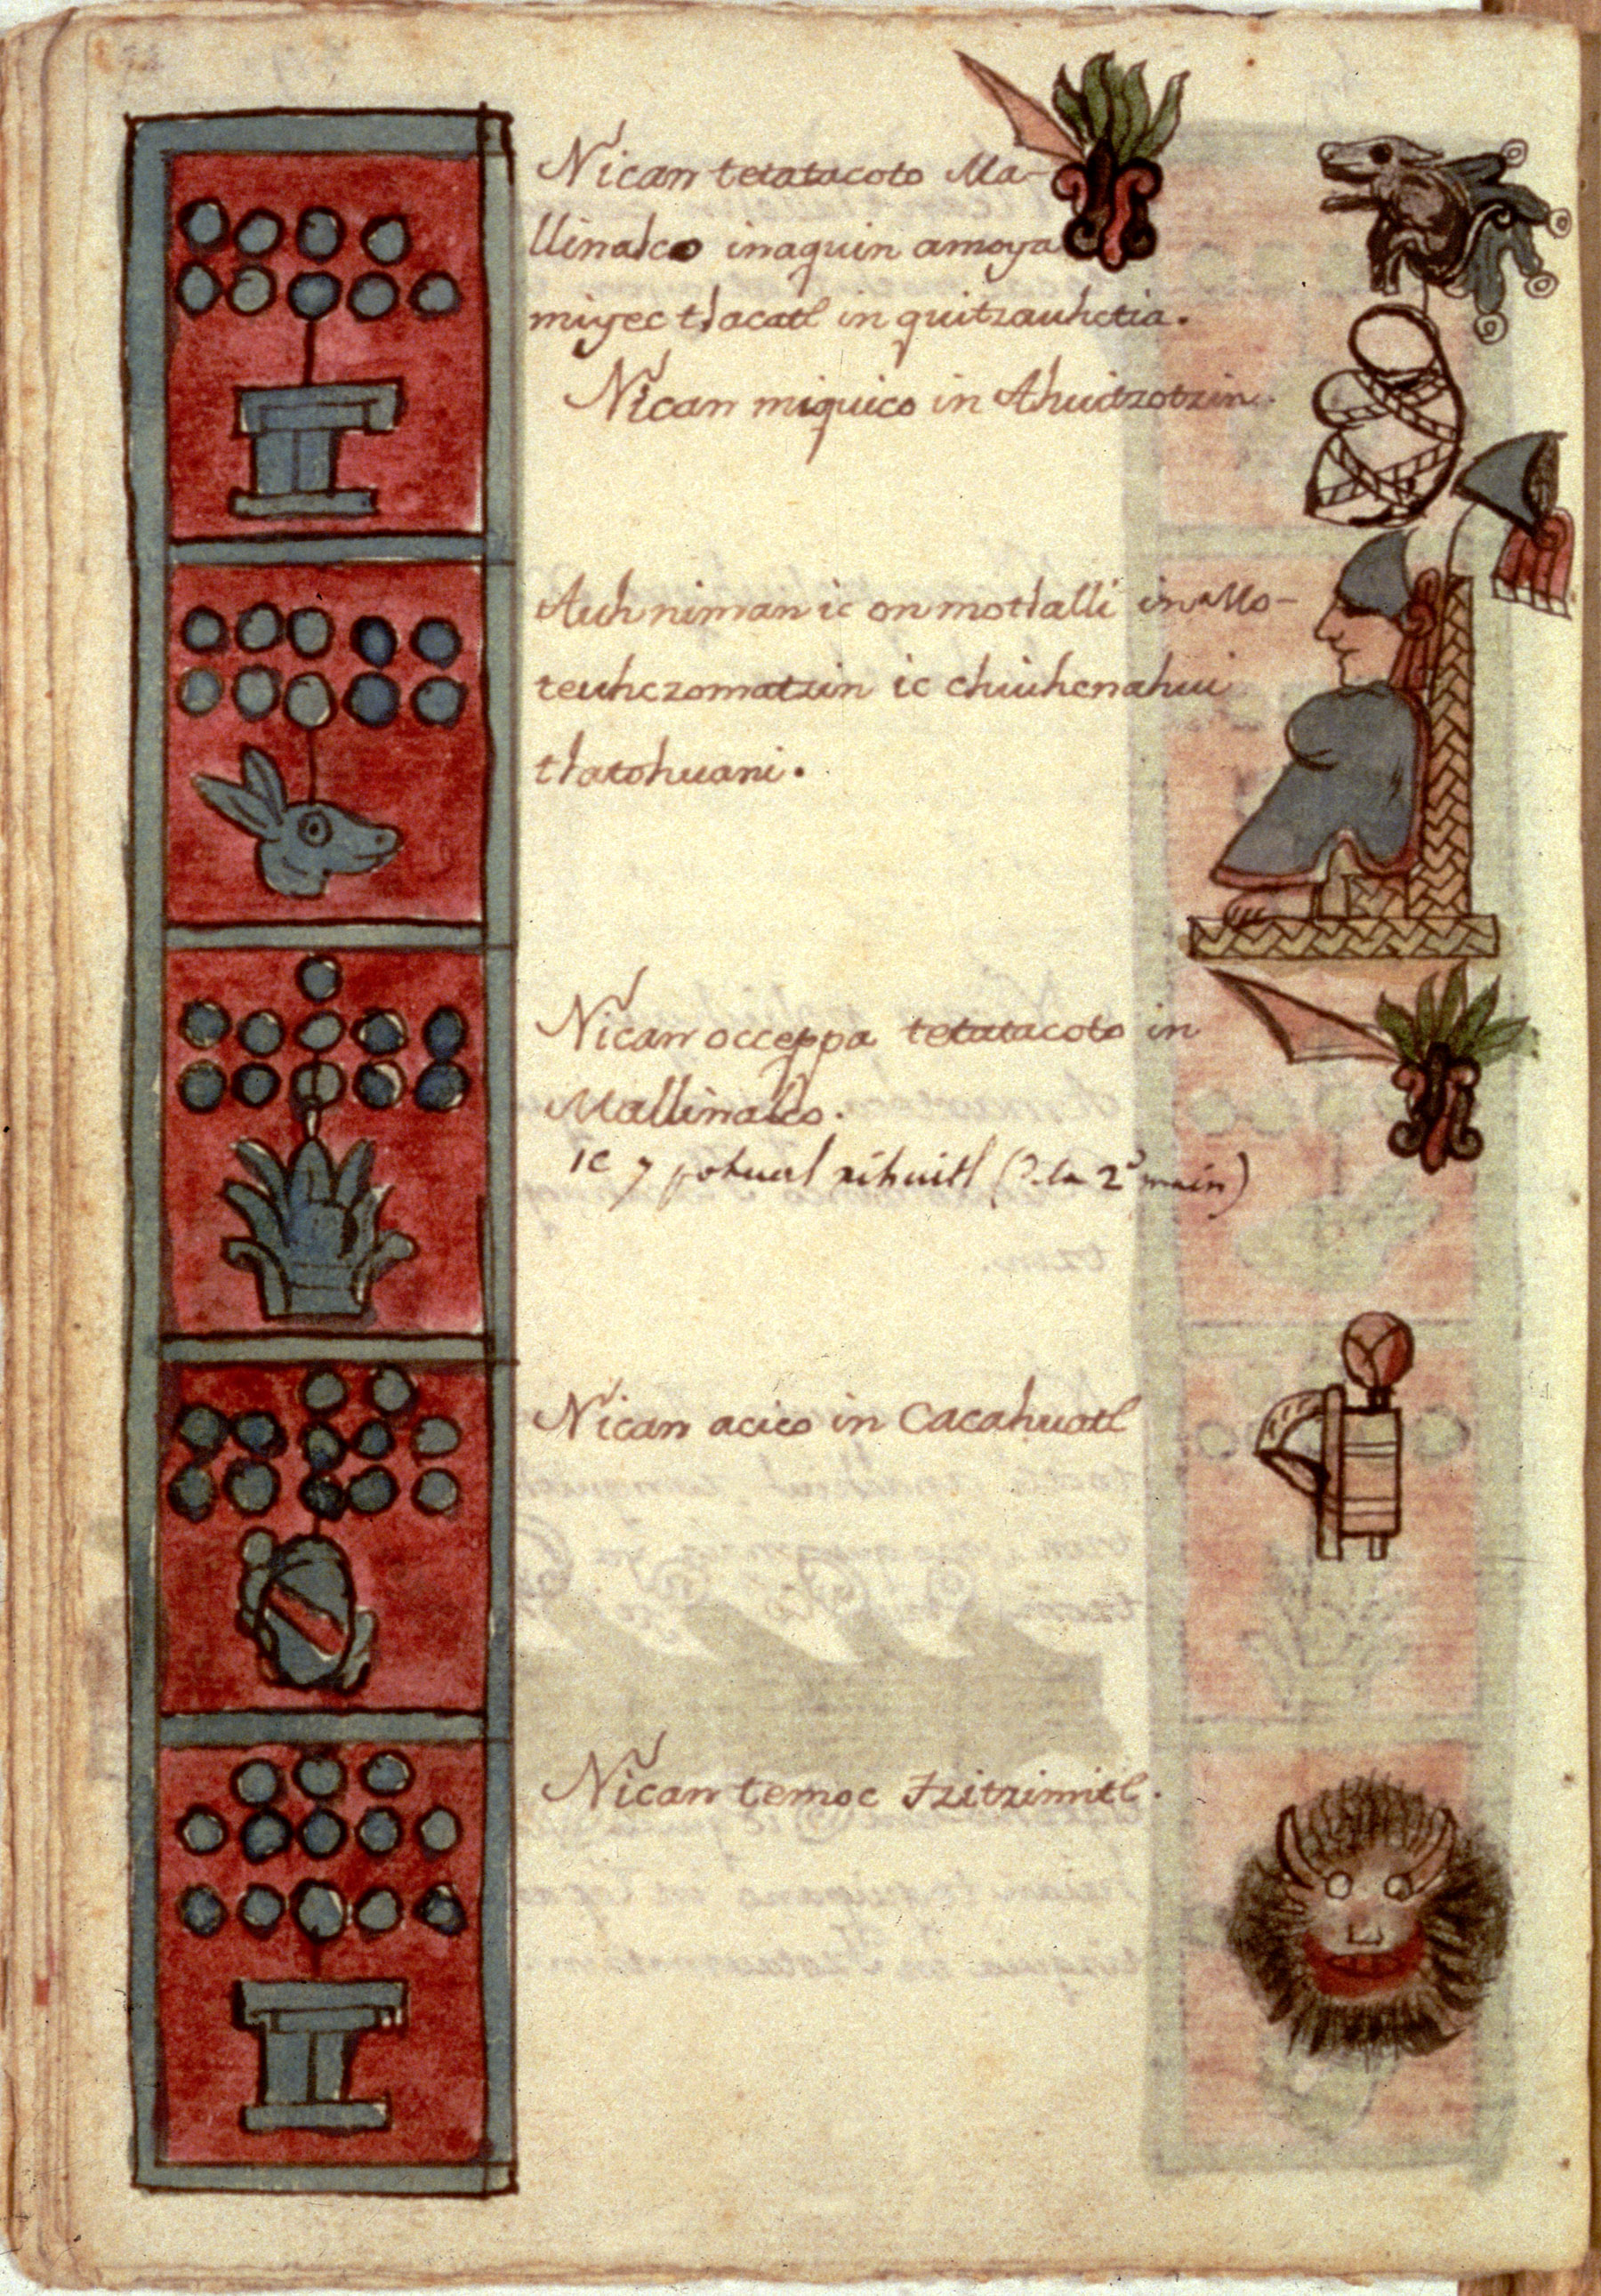 Nican tetatacoto Ma-
llinalco inaquin amoya
miyec tlacatl in quitzauhctia.
Nican miquico in Ahuitzotzin.
Auh niman ic on motlalli in Mo-
teuhczomatzin ic chiuhcnahui
tlatohuani.
Nican occeppa tetatacoto in
Mallinalco.
ic 7 pohual xihuitl (? la 2e main)
Nican acico in Cacahuatl
Nican temoc Tzitzimitl.